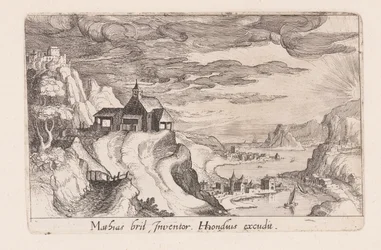 Mathias bril, Inventor. Hondius excudit.